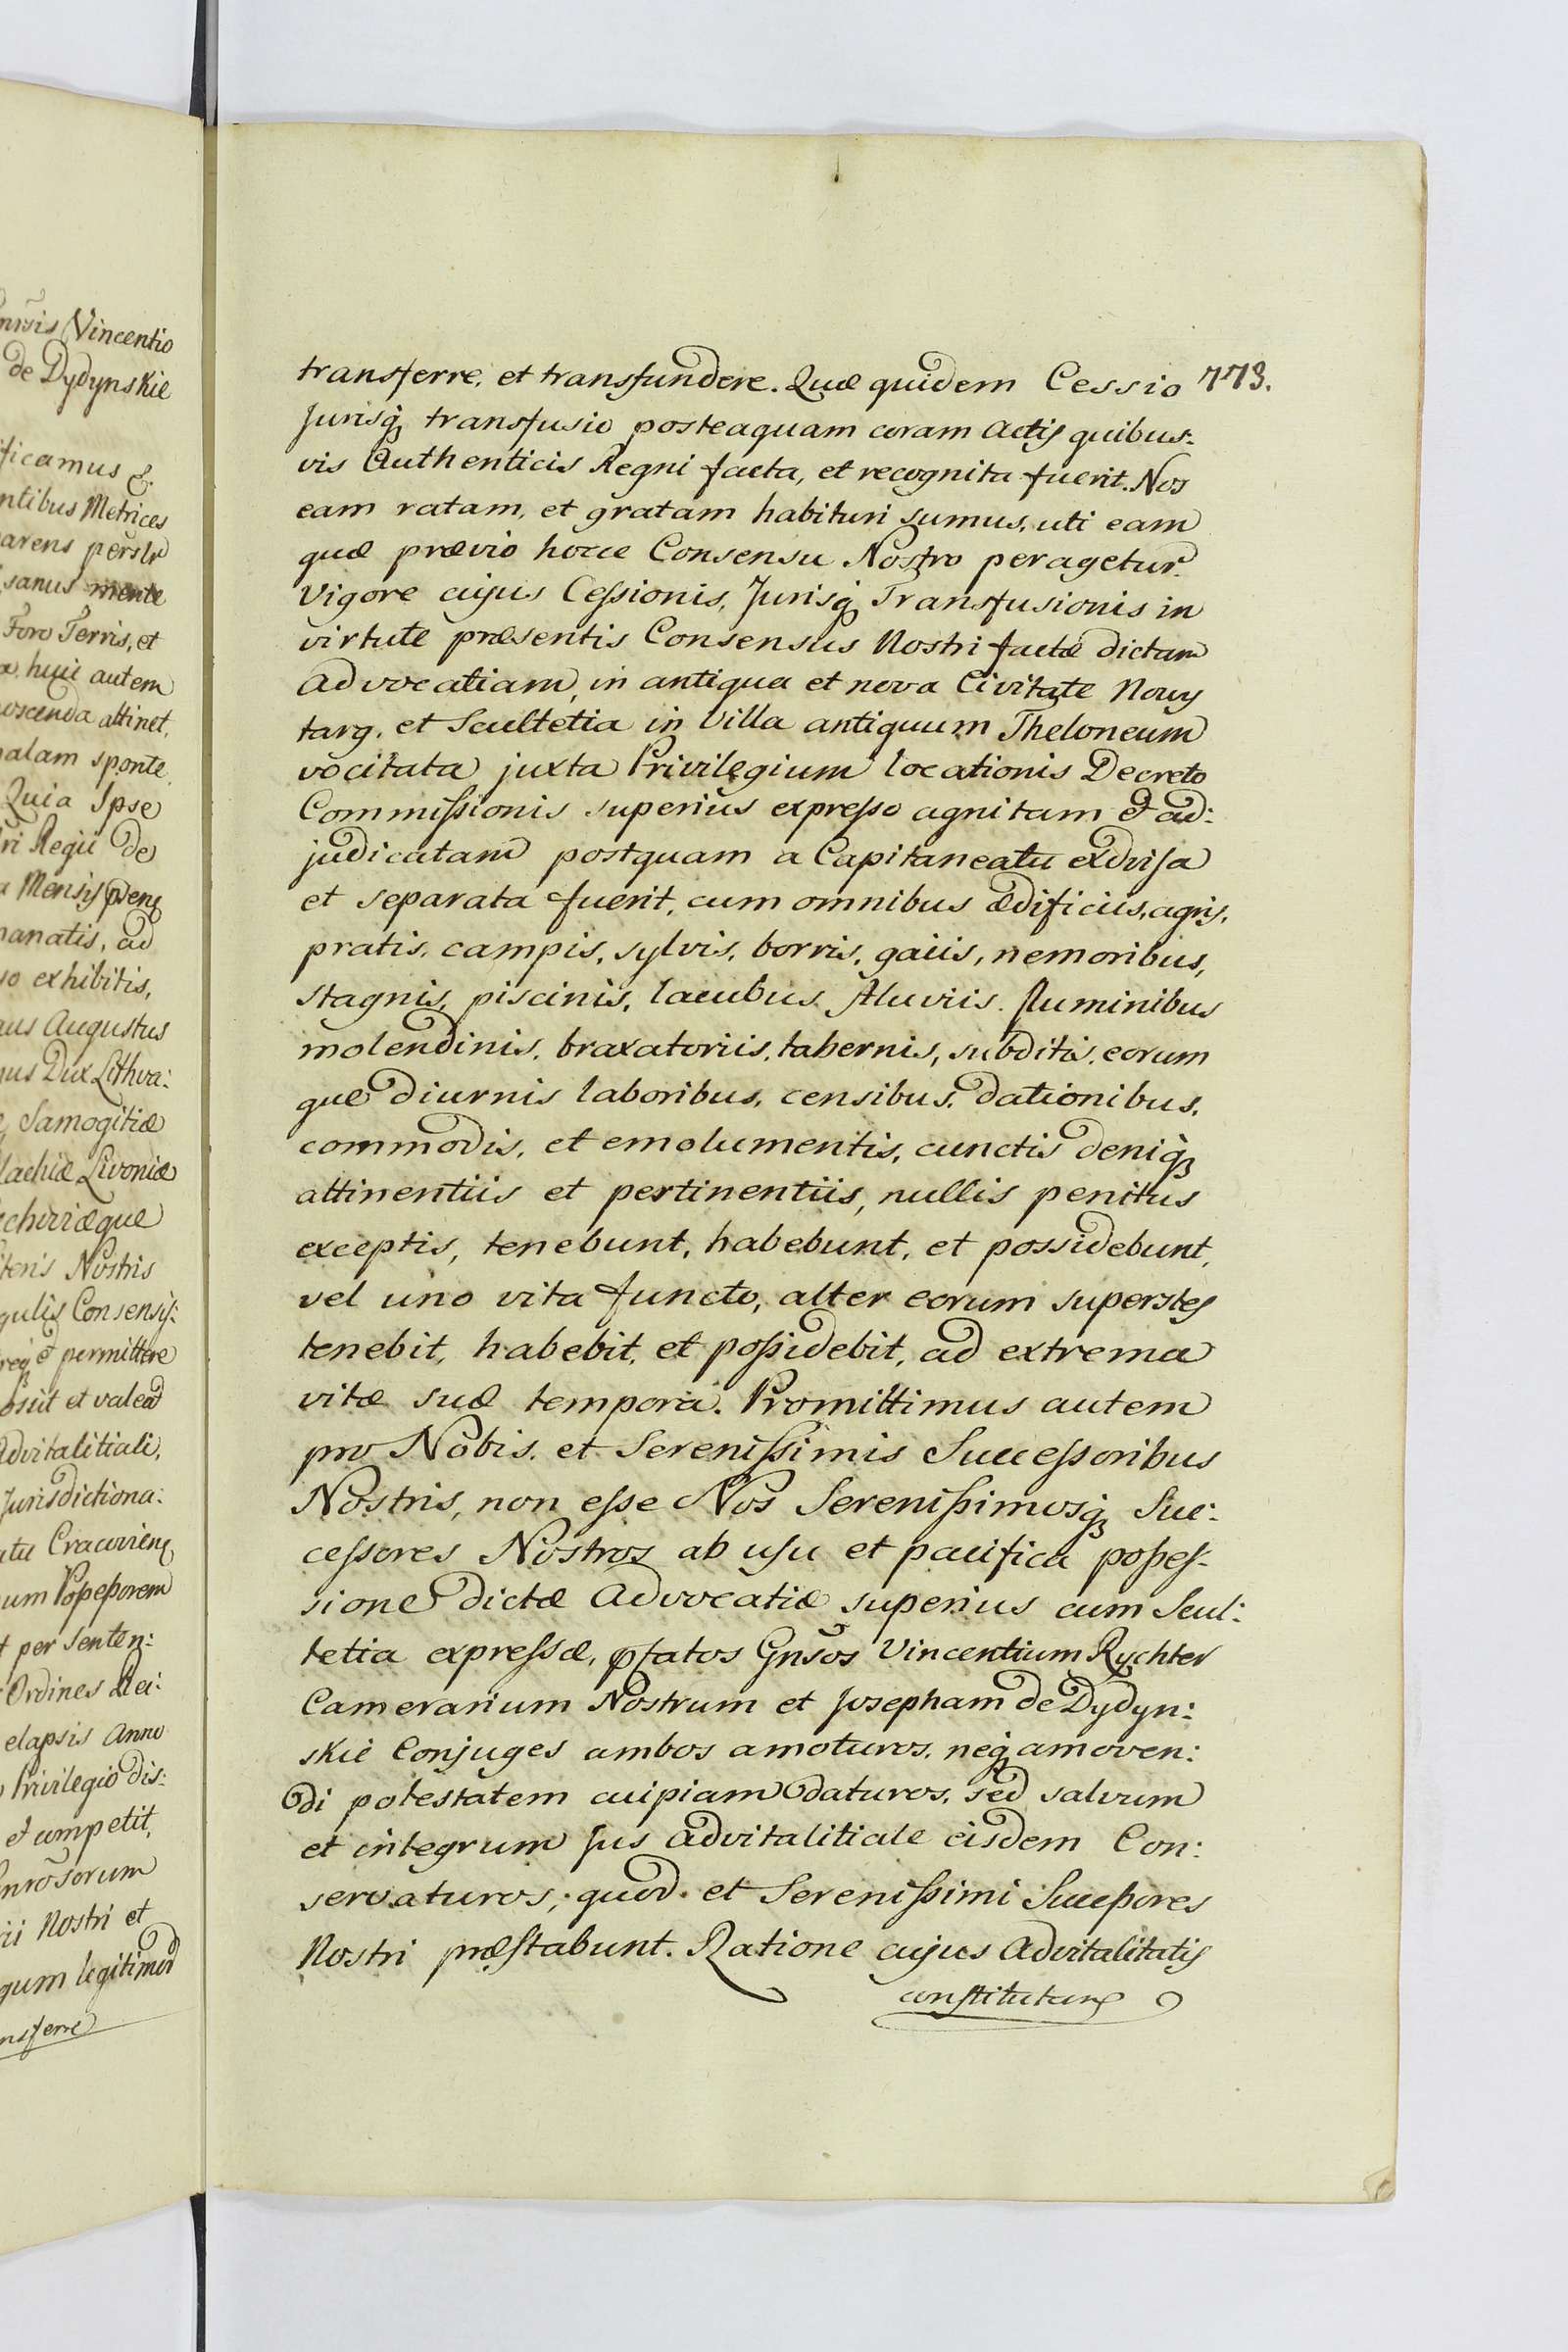 nrsis Vincentio
de Dydynskie
ficamus &
ntibus Metrices
arens persłr
sanus mente
Foro Terris, et
huic autem
oscenda attinet,
alam sponte
Quia Ipse
ri Regii de
Mensis pręnę
anatis, ad
exhibitis,
us Augustus
us Dux Lithva:
Samogitiæ
lachiæ Livoniæ
chiriæque
teris Nostris
gulis Consensỹ:
et permittere
osit et valead
advitalitiali,
Jurisdictiona:
atu Cracovienę
um Poßeßorem
per Senten:
Ordines Rei:
elapsis Anno
Privilegio dis:
et competit,
nrosorum
rii Nostri et
gum legitimor
nsferre
transferre, et transfundere. Quæ quidem Cessio 773.
Jurisq̨ transfusio posteaquam coram Actis quibus:
vis Authenticis Regni facta, et recognita fuerit. Nos
eam ratam, et gratam habituri sumus, uti eam
quæ prævio hocce Consensu Nostro peragetur.
Vigore cujus Ceßionis, Jurisq̨ Transfusionis in
virtute præsentis Consensus Nostri factæ dictam
Advocatiam, in antiqua et nova Civitate Nowy
targ, et Scultetia in Villa antiquum Theloneum
vocitata juxta Privilegium locationis Decreto
Commißionis superius expreßo agnitam et ad:
judicatam postquam a Capitaneatu exdvisa
et separata fuerit, cum omnibus ædificiis, agris,
pratis, campis, sylvis, borris, gaiis, nemoribus,
stagnis, piscinis, lacubus, fluviis, fluminibus
molendinis, braxatoriis, tabernis, subditis, eorum
que diurnis laboribus, censibus, dationibus,
commodis, et emolumentis, cunctis deniq̨
attinentiis et pertinentiis, nullis penitus
exceptis, tenebunt, habebunt, et possidebunt,
vel uno vita functo, alter eorum superstes
tenebit, habebit, et poßidebit, ad extrema
vitæ suæ tempora. Promittimus autem
pro Nobis, et Serenißimis Succeßoribus
Nostris, non eße Nos Serenißimosq̨ Suc:
ceßores Nostros ab usu et pacifica poßes:
sione dictæ Advocatiæ superius cum Scul:
tetia expreßæ, pfatos Gnrsos Vincentium Rychter
Camerarium Nostrum et Josepham de Dydyn:
skie Conjuges ambos amoturos, neq̨ amoven:
di potestatem cuipiam daturos, sed salvum
et integrum Jus advitalitiale eisdem Con:
servaturos; quod et Serenißimi Succeßores
Nostri præstabunt. Ratione cujus Advitalitatis
constitutum